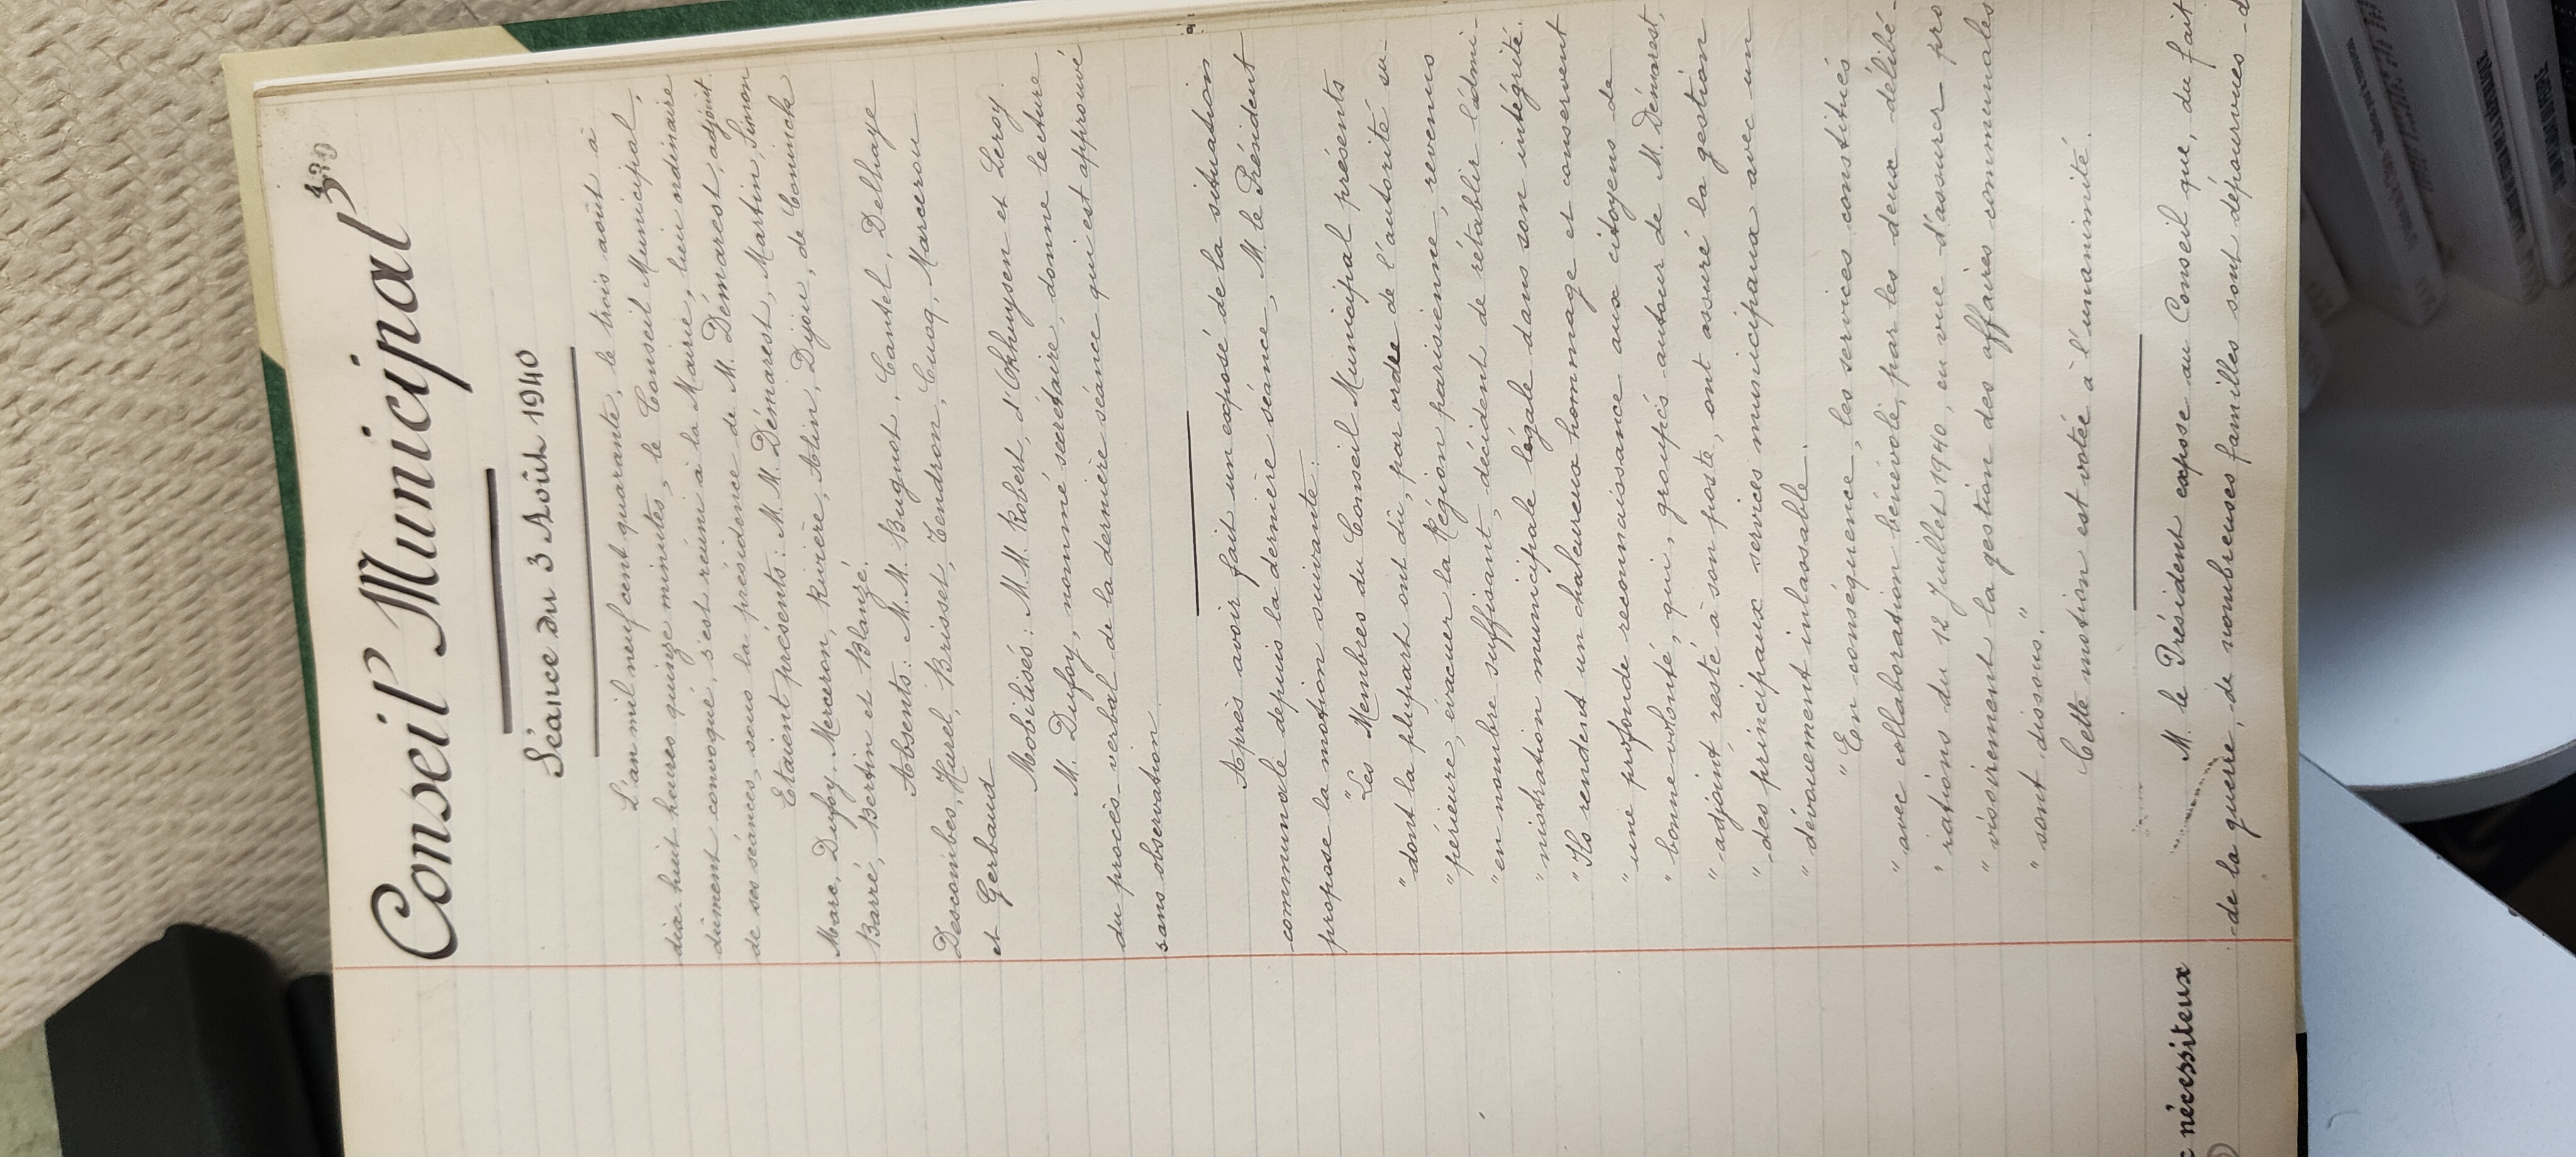 430
Conseil Municipal
Séance du 3 Août 1940
L'an mil neuf cent quarante, le trois août à
dix huit heures quinze minutes, le Conseil Municipal,
dûment convoqué, s'est réuni à la Mairie, lieu ordinaire
de ses séances, sous la présidence de M. Démarest, adjoint.
Etaient présents: M.M. Démarest, Martin, Simon
Marc, Dufoy, Merceron, Rivière, Dijou, de Coninck
Barré, Bertin et Blanzé.
Absents: M.M. Buquet, Cantel, Delhaye
Descombes, Hurel, Brisset, Tendron, Cuoq, Marceron
et Gerbaud
Mobilisés: M.M. Robert, d'Okhuysen et Leroy.
M. Dufoy, nommé secrétaire, donne lecture
du procès-verbal de la dernière séance qui est approuvé
sans observation.
Après avoir fait un exposé de la situation
communale depuis la dernière séance, M. le Président
propose la motion suivante:
"Les Membres du Conseil Municipal présents
"dont la plupart ont dû, par ordre de l'autorité su-
"périeure, évacuer la Région parisienne, revenus
"en nombre suffisant, décident de rétablir l'admi-
"nistration municipale légale dans son intégrité.
"Ils rendent un chaleureux hommage et conservent
"une profonde reconnaissance aux citoyens de
"bonne volonté, qui, groupés autour de M. Démarest,
"adjoint, resté à son poste, ont assuré la gestion
"des principaux services municipaux avec un
"dévouement inlassable.
"En conséquence, les services constitués
"avec collaboration bénévole, par les deux délibé-
"rations du 12 Juillet 1940, en vue d'assurer pro
"visoirement la gestion des affaires communales
"sont dissous."
Cette motion est votée à l'unanimité.
M. le Président expose au Conseil que, du fait
nécessiteux
de la guerre, de nombreuses familles sont dépourvues d